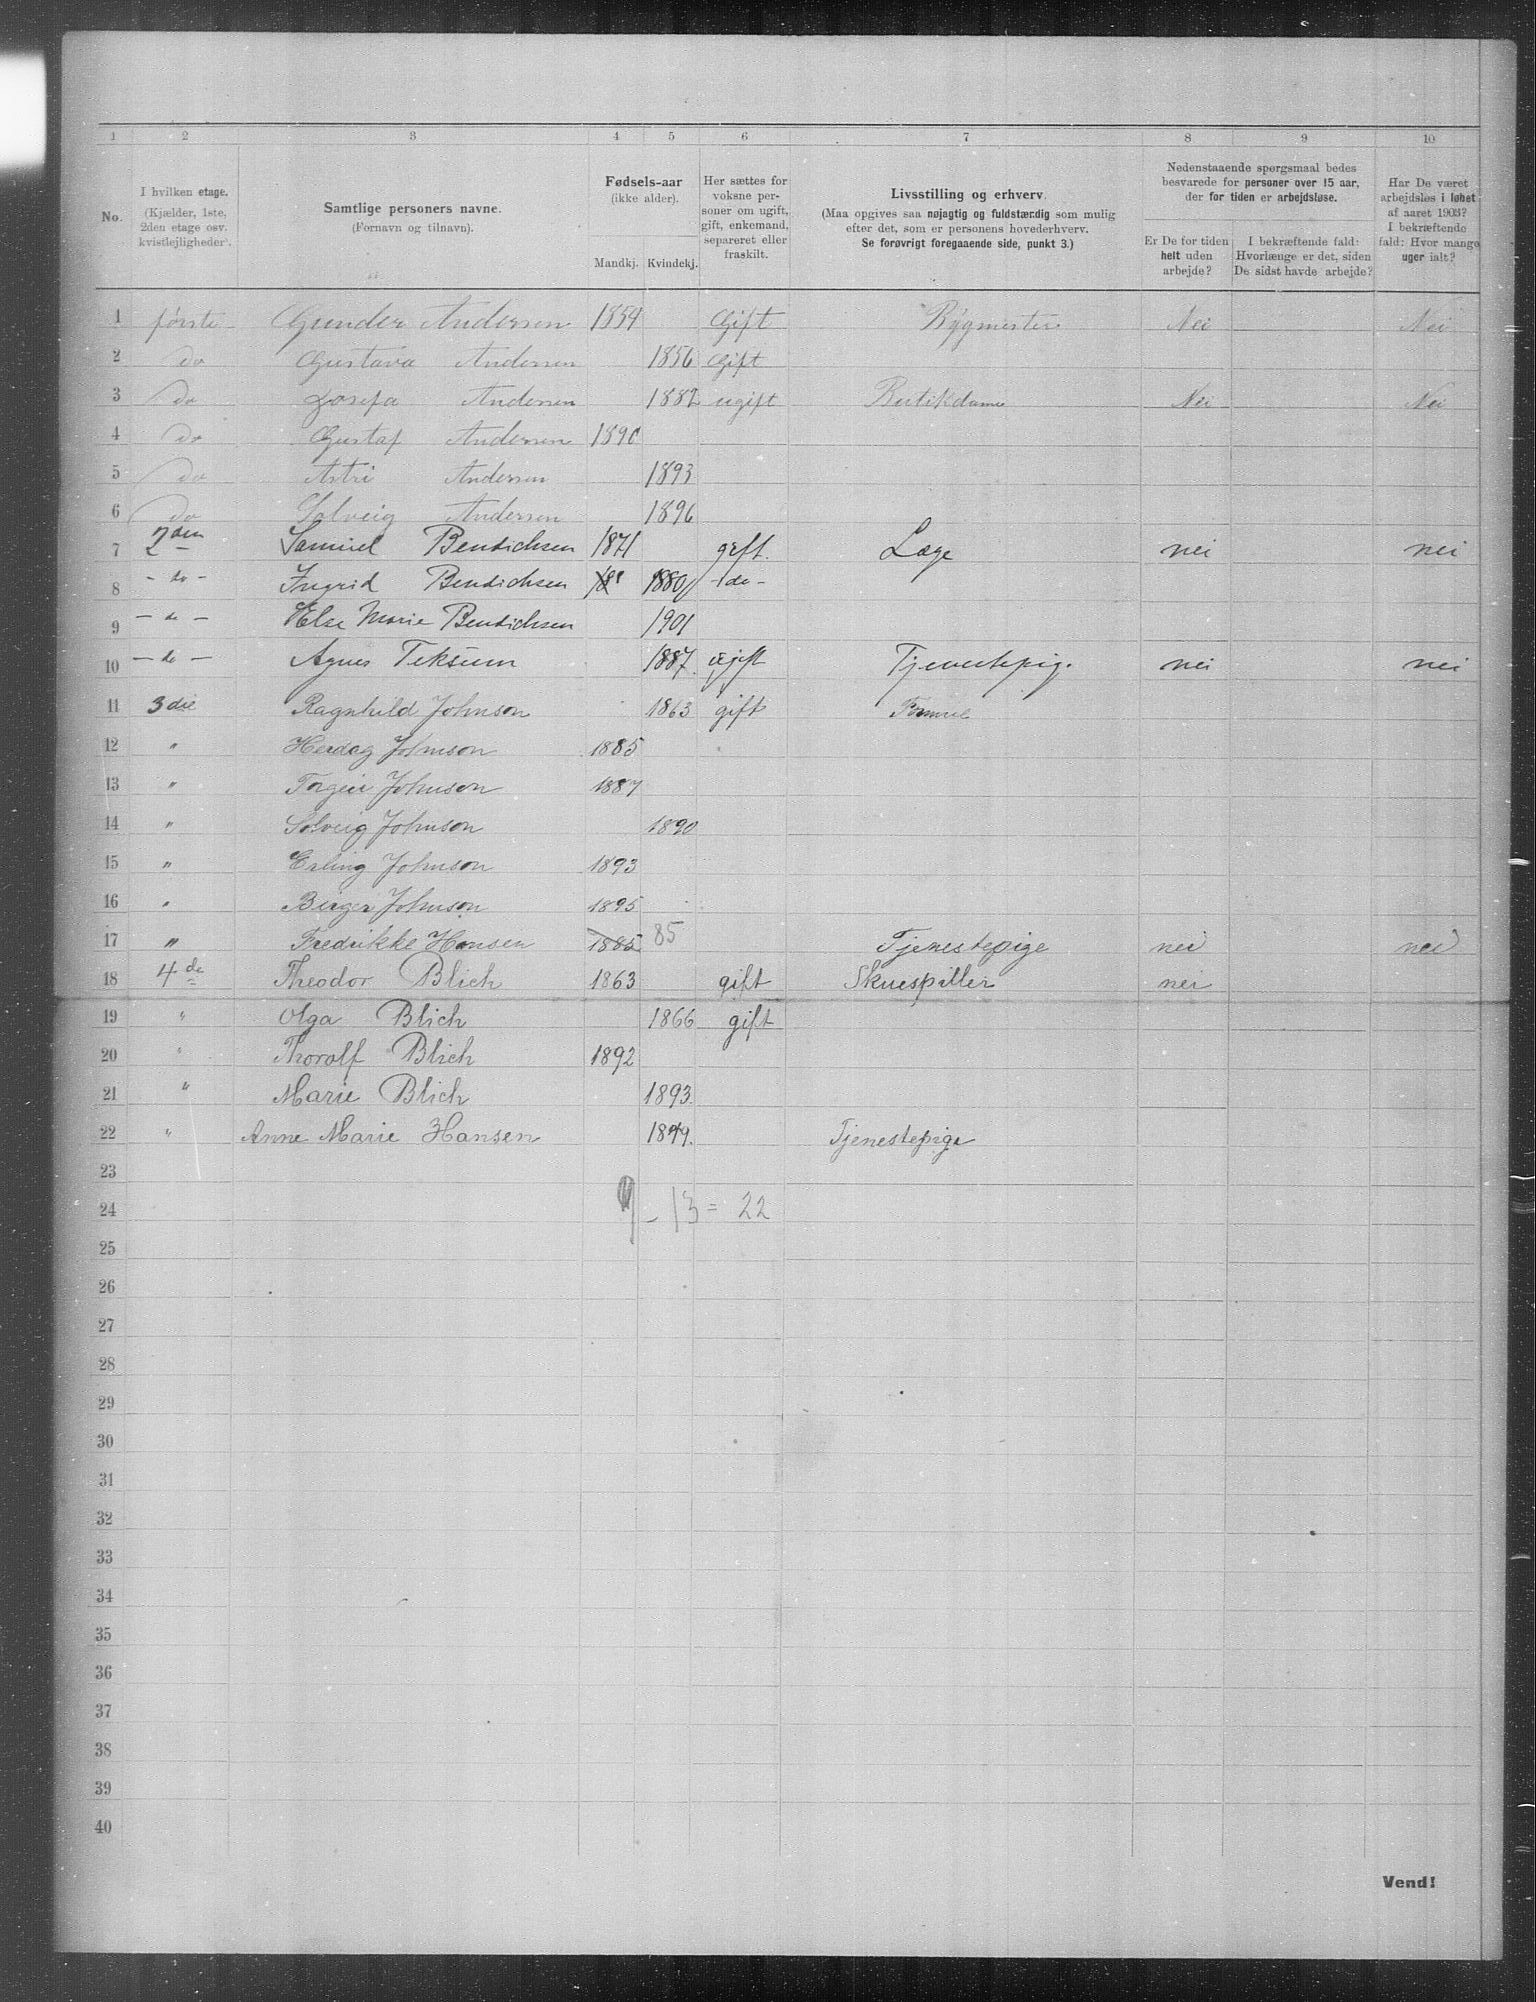 1 2 3 4 5 6 7 8 9 10
No.
I hvilken etage.
(Kjælder, 1ste,
2den etage osv.
kvistlejligheder).
Samtlige personers navne.
(Fornavn og tilnavn).
Fødsels-aar
(ikke alder).
Mandkj. Kvindekj.
Her sættes for
voksne per-
soner om ugift,
gift, enkemand,
separeret eller
fraskilt.
Livsstilling og erhverv.
(Maa opgives saa nøjagtig og fuldstærdig som mulig
efter det, som er personens hovederhverv.
Se forøvrigt foregaaende side, punkt 3.)
Nedenstaaende spørgsmaal bedes
besvarede for personer over 15 aar,
der for tiden er arbejdsløse.
Er De for tiden
helt uden
arbejde?
I bekræftende fald:
Hvorlænge er det, siden
De sidst havde arbejde?
Har De været
arbejdsløs i løbet
af aaret 1903?
I bekræftende
fald: Hvor mange
uger ialt?
1 første Gunder Andersen 1854 Gift Bygmester Nei Nei
2 do Gustava Andersen 1856 Gift
3 do Josefa Andersen 1882 ugift Butikdame Nei Nei
4 do Gustaf Andersen 1890
5 do Astri Andersen 1893
6 do Solveig Andersen 1896
7 2den Samuel Bendichsen 1871 gift. Læge nei nei
8 - do - Ingrid Bendichsen 1880 - do -
9 - do - Else Marie Bendichsen 1901
10 - do - Agnes Teksum 1887 ugift Tjenestepig. nei nei
11 3die Ragnhild Johnson 1863 gift
12 " Herdag Johnson 1885
13 " Torgeir Johnson 1887
14 " Solveig Johnson 1890
15 " Erling Johnson 1893
16 " Birger Johnson 1895
17 " Fredrikke Hansen 1885 85 Tjenestepige nei nei
18 4de Theodor Blich 1863 gift Skuespiller nei
19 " Olga Blich 1866 gift
20 " Thorolf Blich 1892
21 " Marie Blich 1893
22 " Anne Marie Hansen Tjenestepige
23
24 9 - 13 = 22
25
26
27
28
29
30
31
32
33
34
35
36
37
38
39
40
Vend!